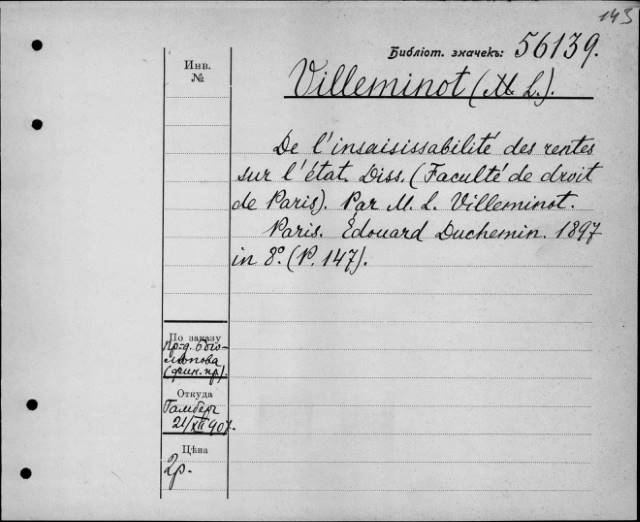 143
Библіот. значекъ: 56139.
Инв.
№
Villeminot (M. L.).
De l'insaisissabilité des rentes
sur l'état. Diss. (Faculté de droit
de Paris). Par M. L. Villeminot.
Paris. Édouard Duchemin. 1897
in 8º. (P. 147).
По заказу
(фин. пр.).
Откуда
Гамберг
21/XII 907.
Цѣна
2р.